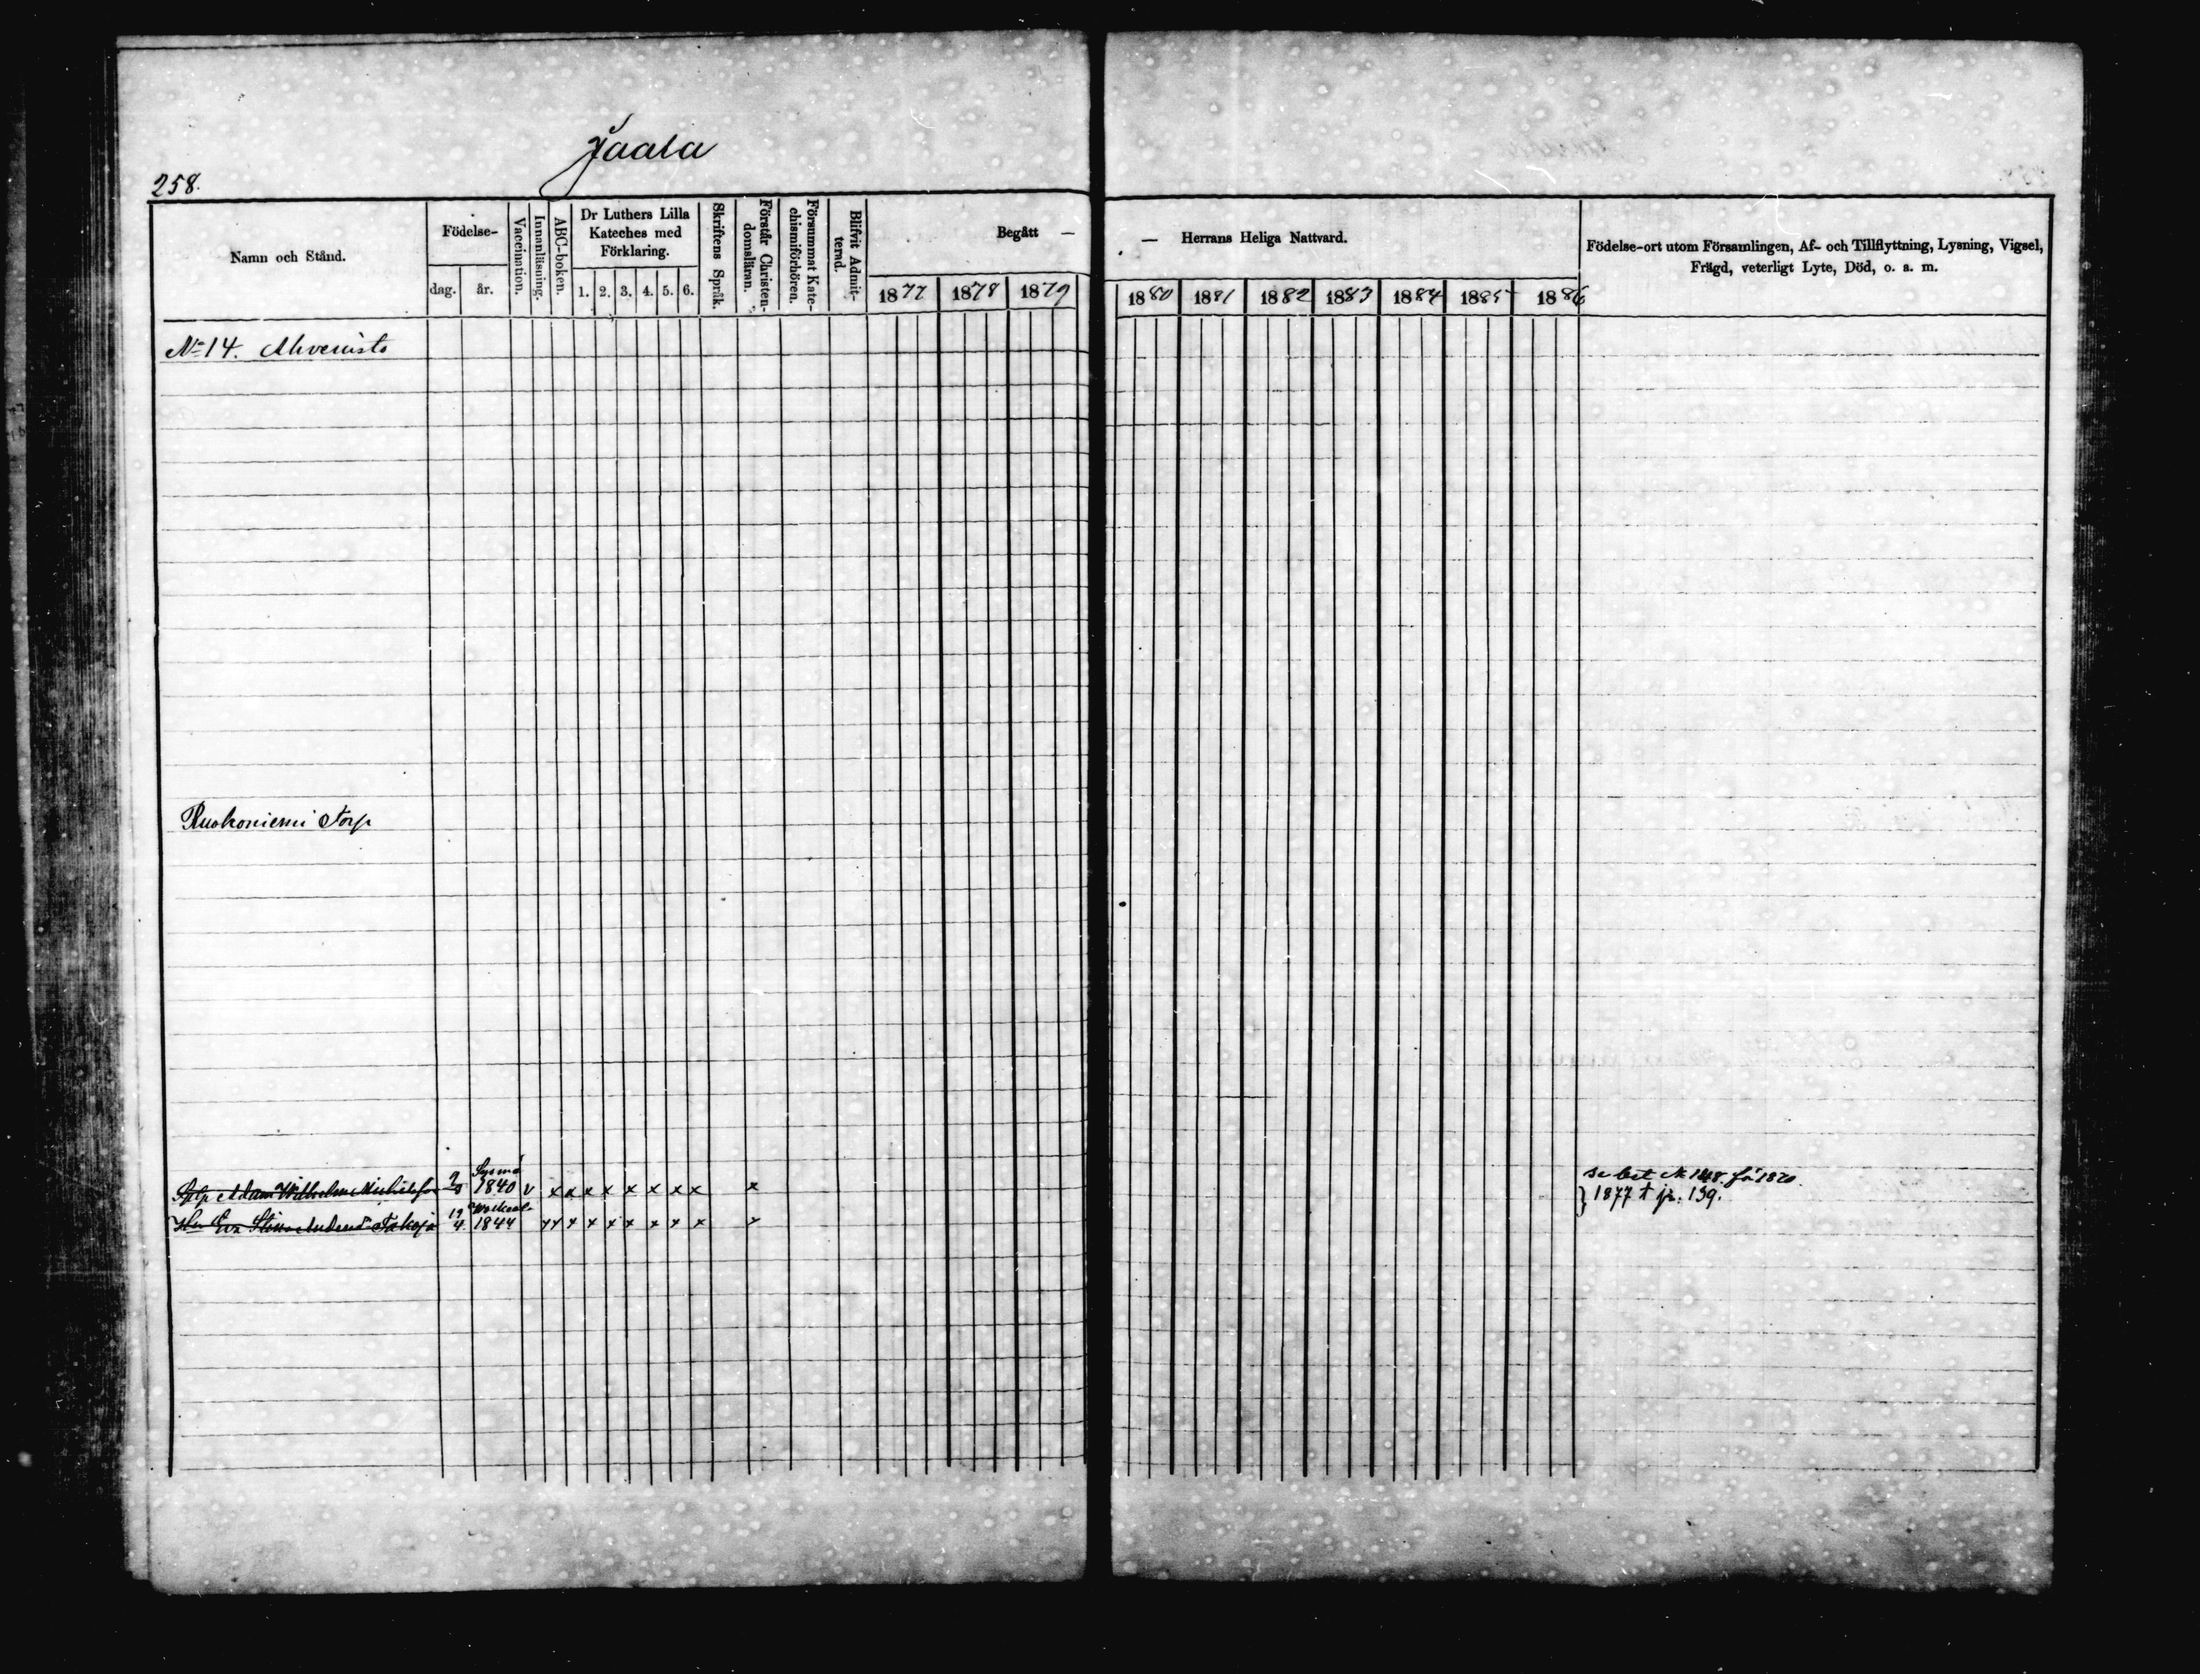 Jaala
258.
Namn och Stånd.
Födelse-
dag.
år.
Vaccination.
Innanläsning.
ABC-boken.
Dr Luthers Lilla
Kateches med
Förklaring.
1. 2. 3. 4. 5. 6.
Skriftens Språk.
Förstår Christen-
domsläran.
Försummat Kate-
chismiförhören.
Blifvit Admit-
terad.
Begått —
1877 1878 1879
— Herrans Heliga Nattvard.
1880 1881 1882 1883 1884 1885 1886
Födelse-ort utom Församlingen, Af- och Tillflyttning, Lysning, Vigsel,
Frägd, veterligt Lyte, Död, o. a. m.
No 14. Ahvenisto
Ruokoniemi Torp
Sysmä
Adam Wilhelm Michelsson 1840 v x x x x x x x x x
1877 f jr. 139.
Eva Stina 19 4. 1844 x x x x x x x x x x